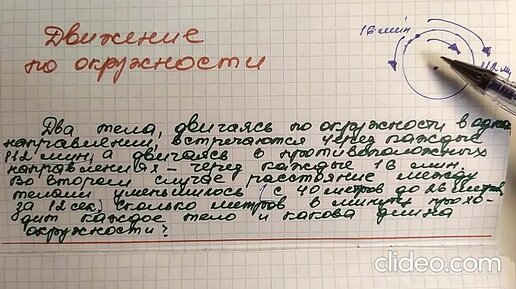 Движение
по окружности
16 min
112 м
Два тела, двигаясь по окружности в одном
направлении, встречаются через каждые
112 мин, а двигаясь в противоположных
направлениях - через каждые 16 мин.
Во втором случае расстояние между
телами уменьшилось с 40 метров до 26 метров
за 12 сек. Сколько метров в минуту прохо-
дит каждое тело и какова длина
окружности?
clideo.com